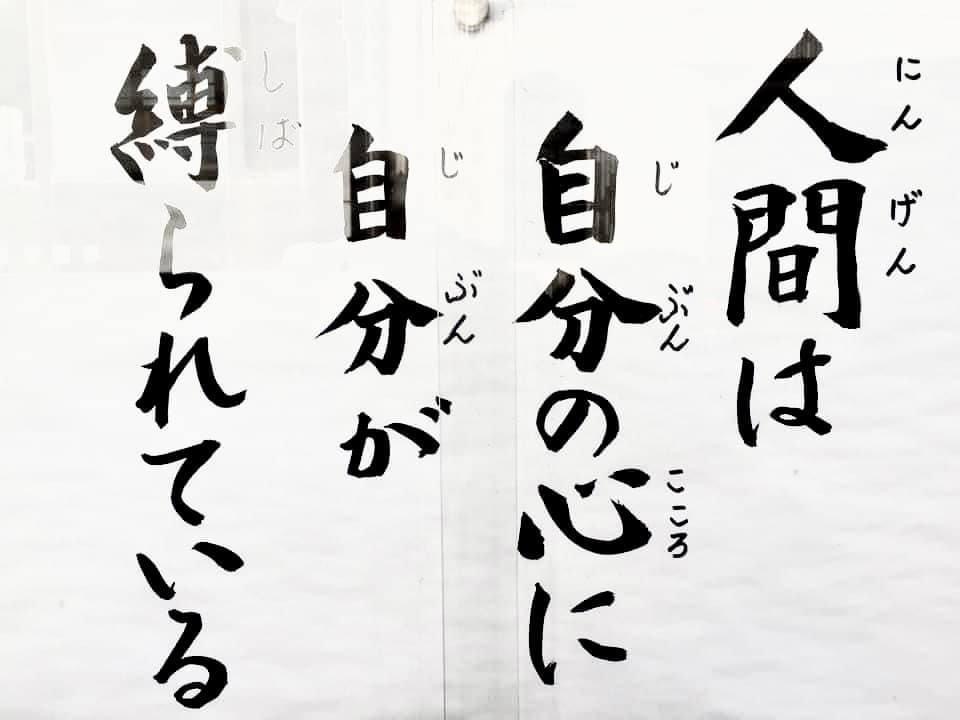 人間は
にんげん
自分の心に
じぶん こころ
自分が
じぶん
縛られている
しば